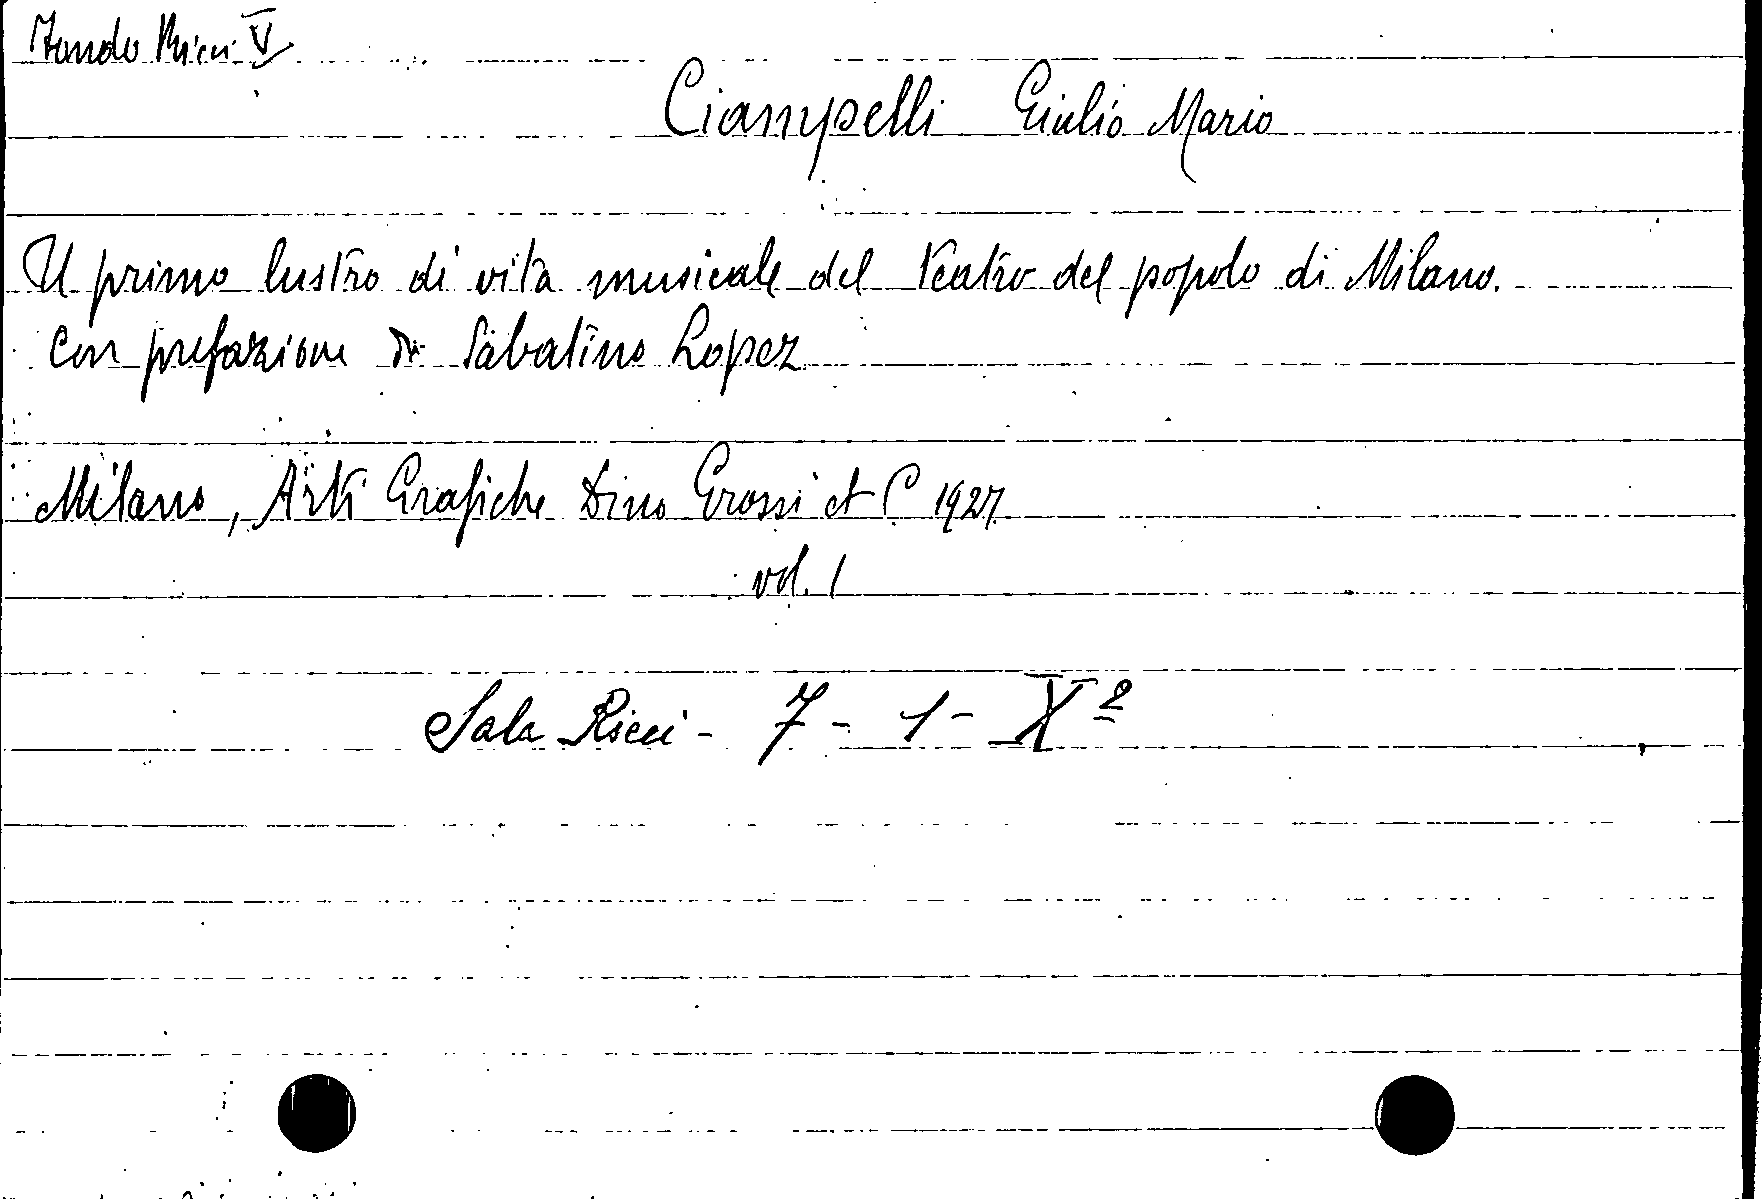 Fondo Ricci V
Ciampelli Giulio Mario
Il primo lustro di vita musicale del Teatro del popolo di Milano.
Con prefazione di Sabatino Lopez
Milano, Arti Grafiche Dino Grossi et C 1927
vol. 1
Sala Ricci - 7 - 1 - X º